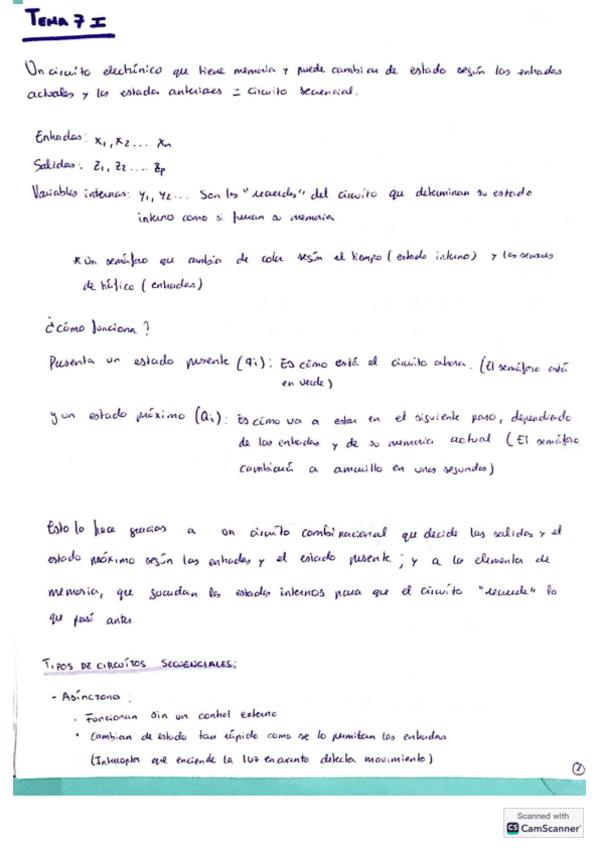 TEMA 7 I
Un circuito electrónico que tiene memoria y puede cambiar de estado según las entradas
actuales y los estados anteriores = Circuito secuencial.
Entradas: x₁, x₂ ... xₙ
Salidas: z₁, z₂ .... zₚ
Variables internas: y₁, y₂ ... Son los "recuerdos" del circuito que determinan su estado
interno como si fueran a memoria
* Un semáforo que cambia de color según el tiempo (estado interno) y los sensores
de tráfico (entradas)
¿Cómo funciona?
Presenta un estado presente (qi): Es cómo está el circuito ahora. (El semáforo está
en verde)
y un estado próximo (Qi): Es cómo va a estar en el siguiente paso, dependiendo
de las entradas y de su memoria actual (El semáforo
cambiará a amarillo en unos segundos)
Esto lo hace gracias a un circuito combinacional que decide las salidas y el
estado próximo según las entradas y el estado presente; y a los elementos de
memoria, que guardan los estados internos para que el circuito "recuerde" lo
que pasó antes
TIPOS DE CIRCUITOS SECUENCIALES:
- Asíncrono:
· Funcionan sin un control externo
· Cambian de estado tan rápido como se lo permitan las entradas
(Interruptor que enciende la luz en cuanto detecta movimiento)
1
Scanned with
CS CamScanner